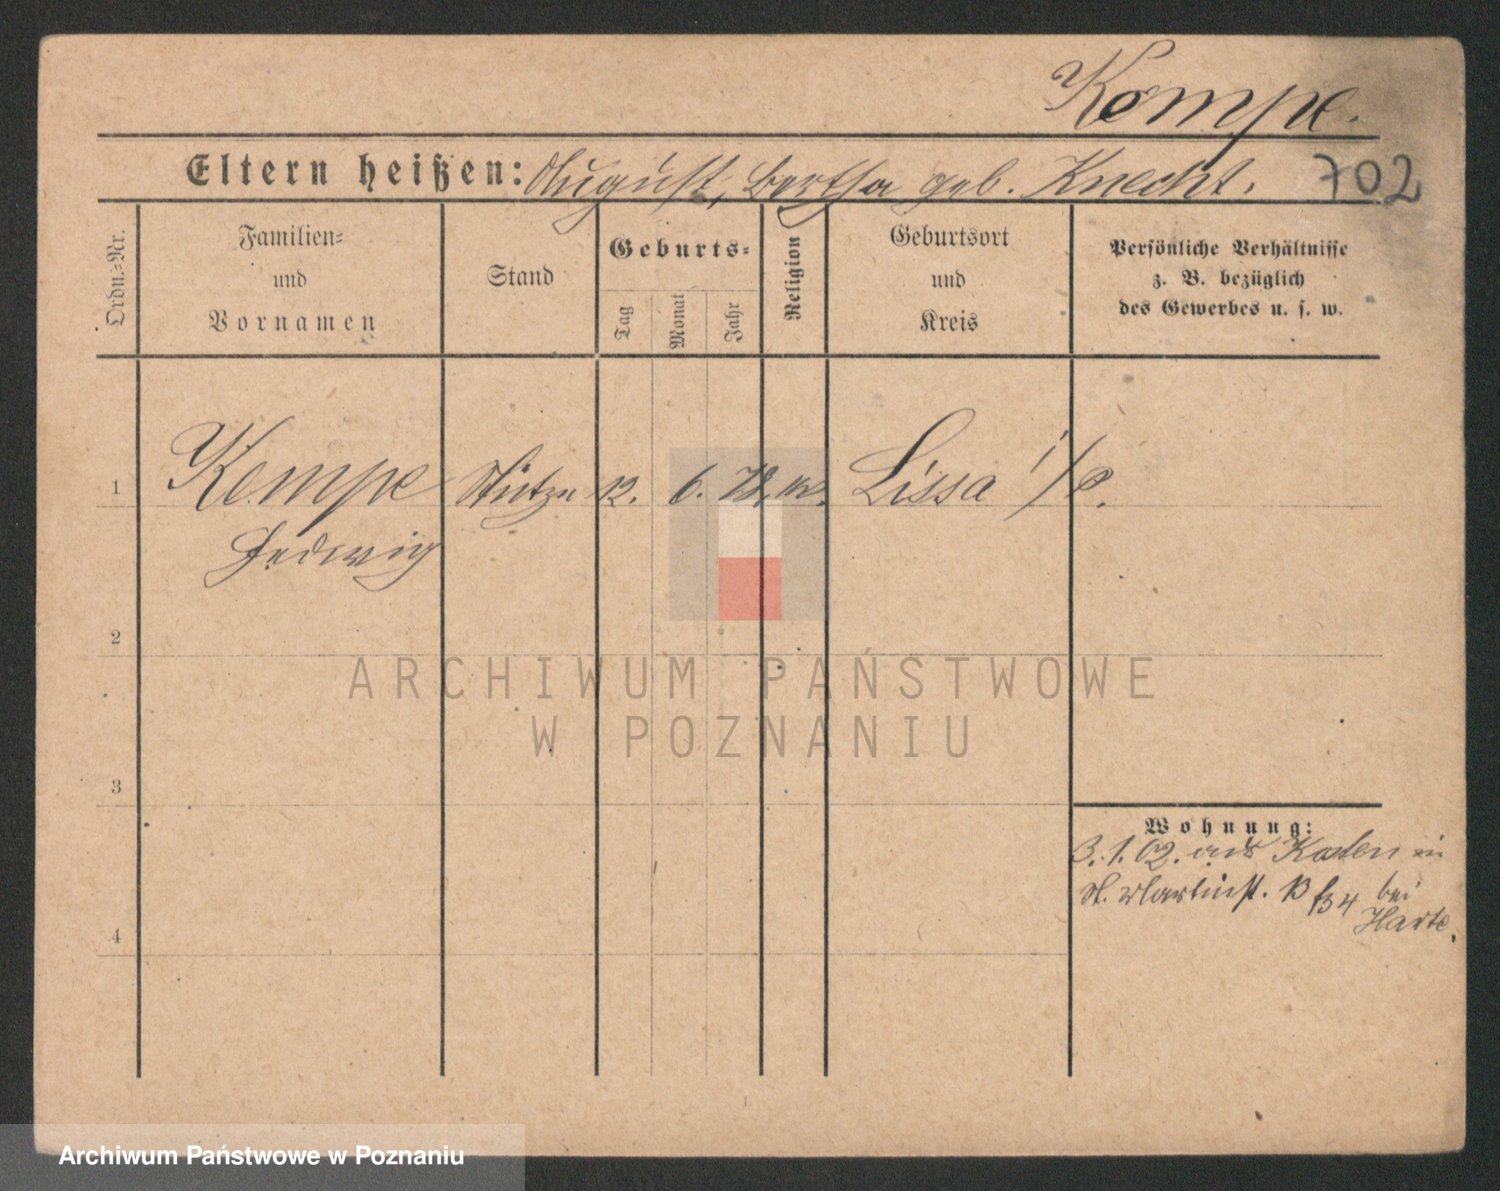 Kempe.
Eltern heißen: August, Bertha geb. Knecht. 702
Ordn.=Nr.
Familien=
und
Vornamen
Stand
Geburts=
Tag
Monat
Jahr
Religion
Geburtsort
und
Kreis
Persönliche Verhältnisse
z. B. bezüglich
des Gewerbes u. s. w.
1 Kempe Stütze 12. 6. 78. Lissa i/P.
Hedwig
2
3
4
Wohnung:
3.1.02. aus in
St. Martinst. bei
Harte.
ARCHIWUM PAŃSTWOWE
W POZNANIU
Archiwum Państwowe w Poznaniu